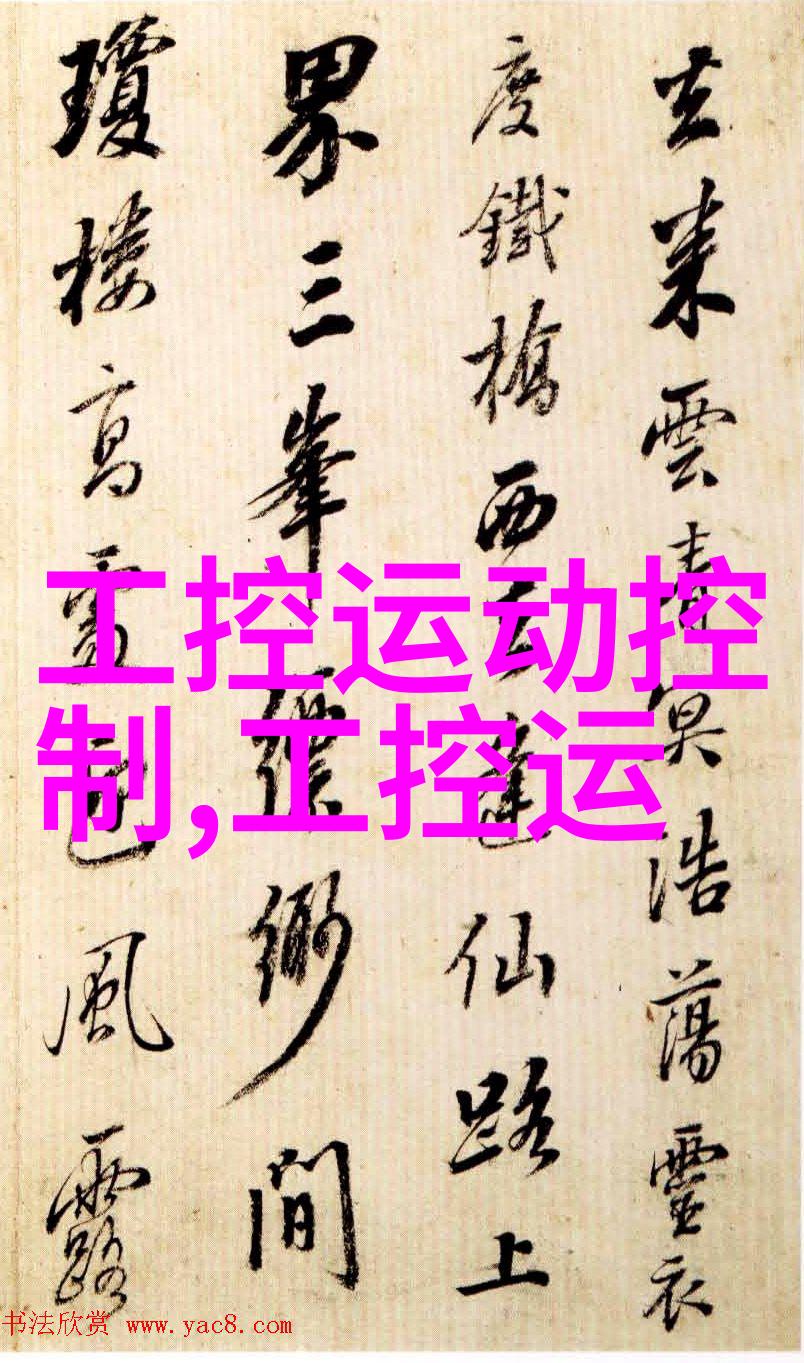 雲青冥浩蕩靈衣
度鐵橋西仙路上
界三峯縹緲間
瓊樓高風露
工控运动控
制,工控运
书法欣赏 www.yac8.com